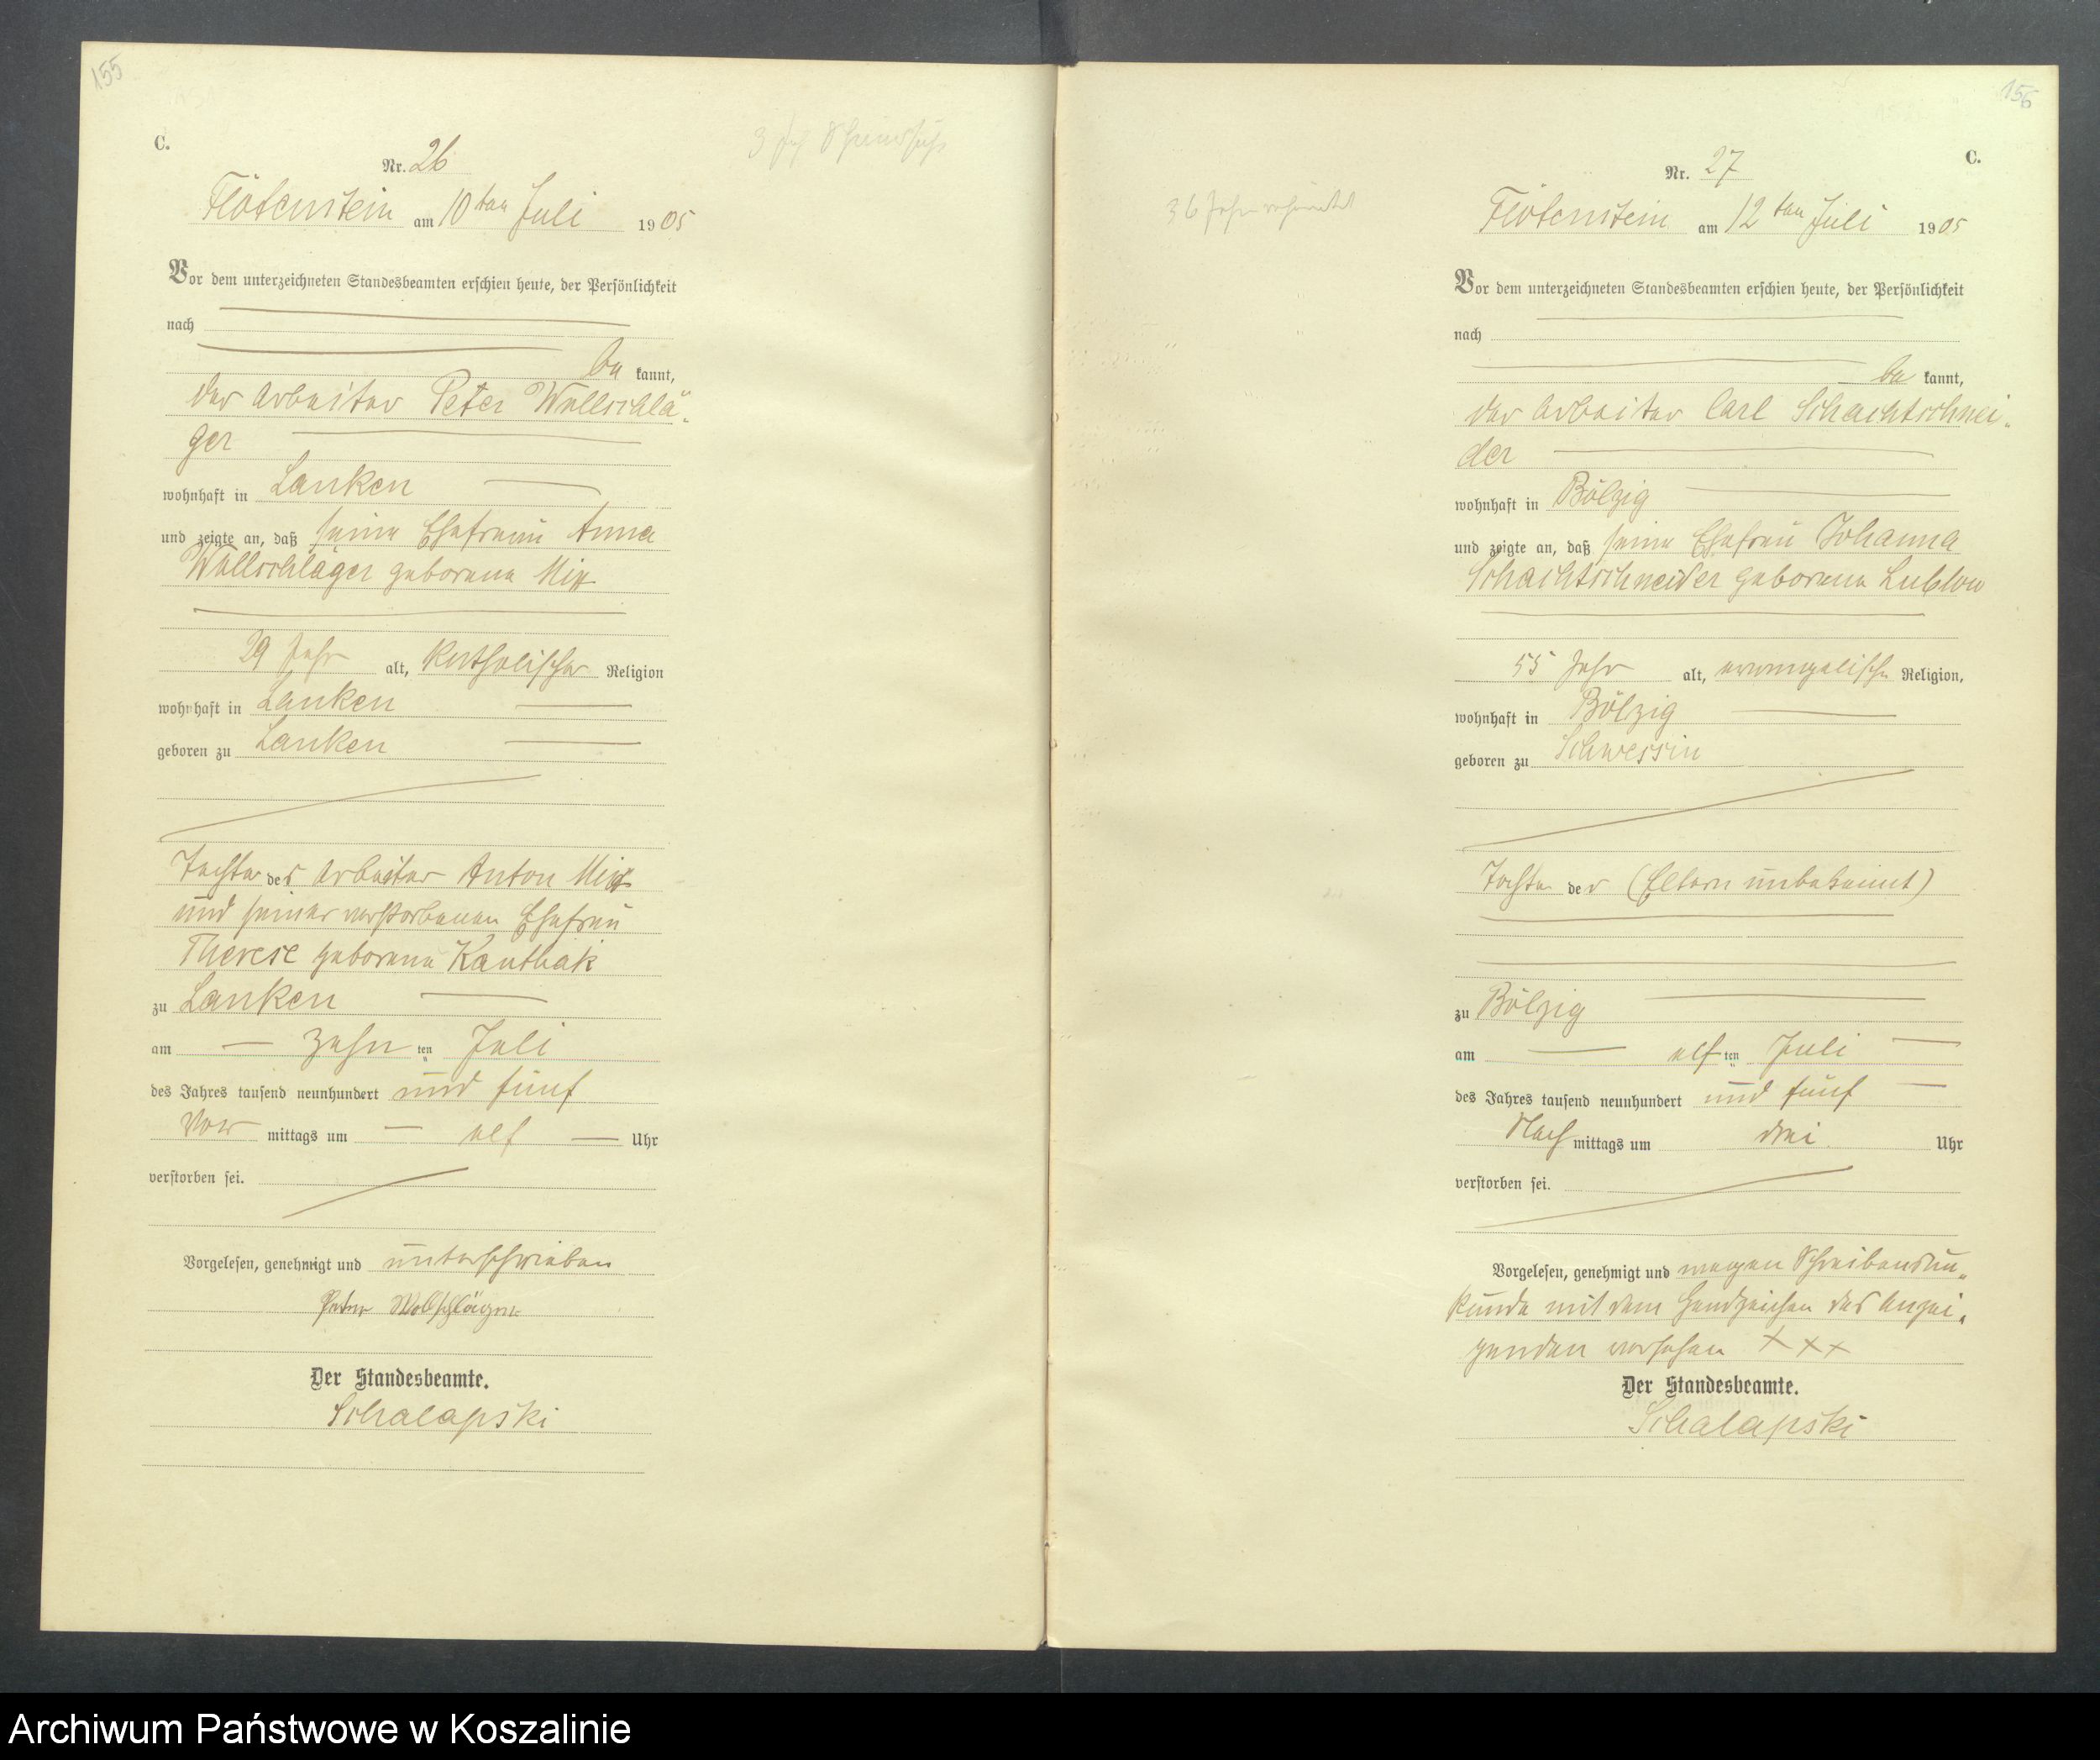 155
C.
Nr. 26
Flötenstein am 10ten Juli 1905
Vor dem unterzeichneten Standesbeamten erschien heute, der Persönlichkeit
nach
be kannt,
der Arbeiter Peter Wollschlä-
ger
wohnhaft in Lanken
und zeigte an, daß seine Ehefrau Anna
Wollschläger geborene Mix
29 Jahr alt, katholischer Religion
wohnhaft in Lanken
geboren zu Lanken
Tochter des Arbeiter Anton Mix
und seiner verstorbenen Ehefrau
Therese geborene Kanthak
zu Lanken
am zehn ten Juli
des Jahres tausend neunhundert und fünf
Vor mittags um elf Uhr
verstorben sei.
Vorgelesen, genehmigt und unterschrieben
Peter Wollschläger
Der Standesbeamte.
Schalapski
156
C.
Nr. 27
36 Jahr verheiratet
Flötenstein am 12ten Juli 1905
Vor dem unterzeichneten Standesbeamten erschien heute, der Persönlichkeit
nach
be kannt,
der Arbeiter Carl Schachtschnei-
der
wohnhaft in Bölzig
und zeigte an, daß seine Ehefrau Johanna
Schachtschneider geborene Lublow
55 Jahr alt, evangelische Religion,
wohnhaft in Bölzig
geboren zu Schwessin
Tochter der (Eltern unbekannt)
zu Bölzig
am elf ten Juli
des Jahres tausend neunhundert und fünf
Nach mittags um drei Uhr
verstorben sei.
Vorgelesen, genehmigt und wegen Schreibensun-
kunde mit dem Handzeichen des Anzei-
genden versehen +++
Der Standesbeamte.
Schalapski
Archiwum Państwowe w Koszalinie